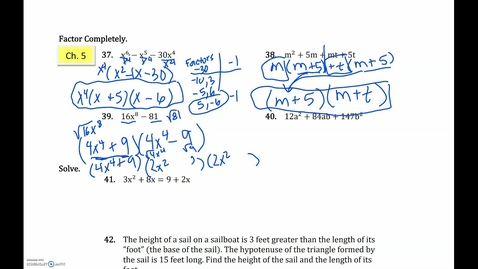 Factor Completely.
Ch. 5
37. x⁶ − x⁵ − 30x⁴
x⁴ x⁴ x⁴
x⁴(x² − x − 30)
x⁴(x + 5)(x − 6)
Factors -1
-30
-10, 3
-5, 6
5, -6 -1
38. m² + 5m + mt + 5t
m(m+5)+t(m+5)
(m+5)(m+t)
39. 16x⁸ − 81 √81
√16x⁸
(4x⁴ + 9)(4x⁴ − 9)
√4x⁴ √9
(4x⁴+9)(2x² )(2x² )
40. 12a² + 84ab + 147b²
Solve.
41. 3x² + 8x = 9 + 2x
42. The height of a sail on a sailboat is 3 feet greater than the length of its
"foot" (the base of the sail). The hypotenuse of the triangle formed by
the sail is 15 feet long. Find the height of the sail and the length of its